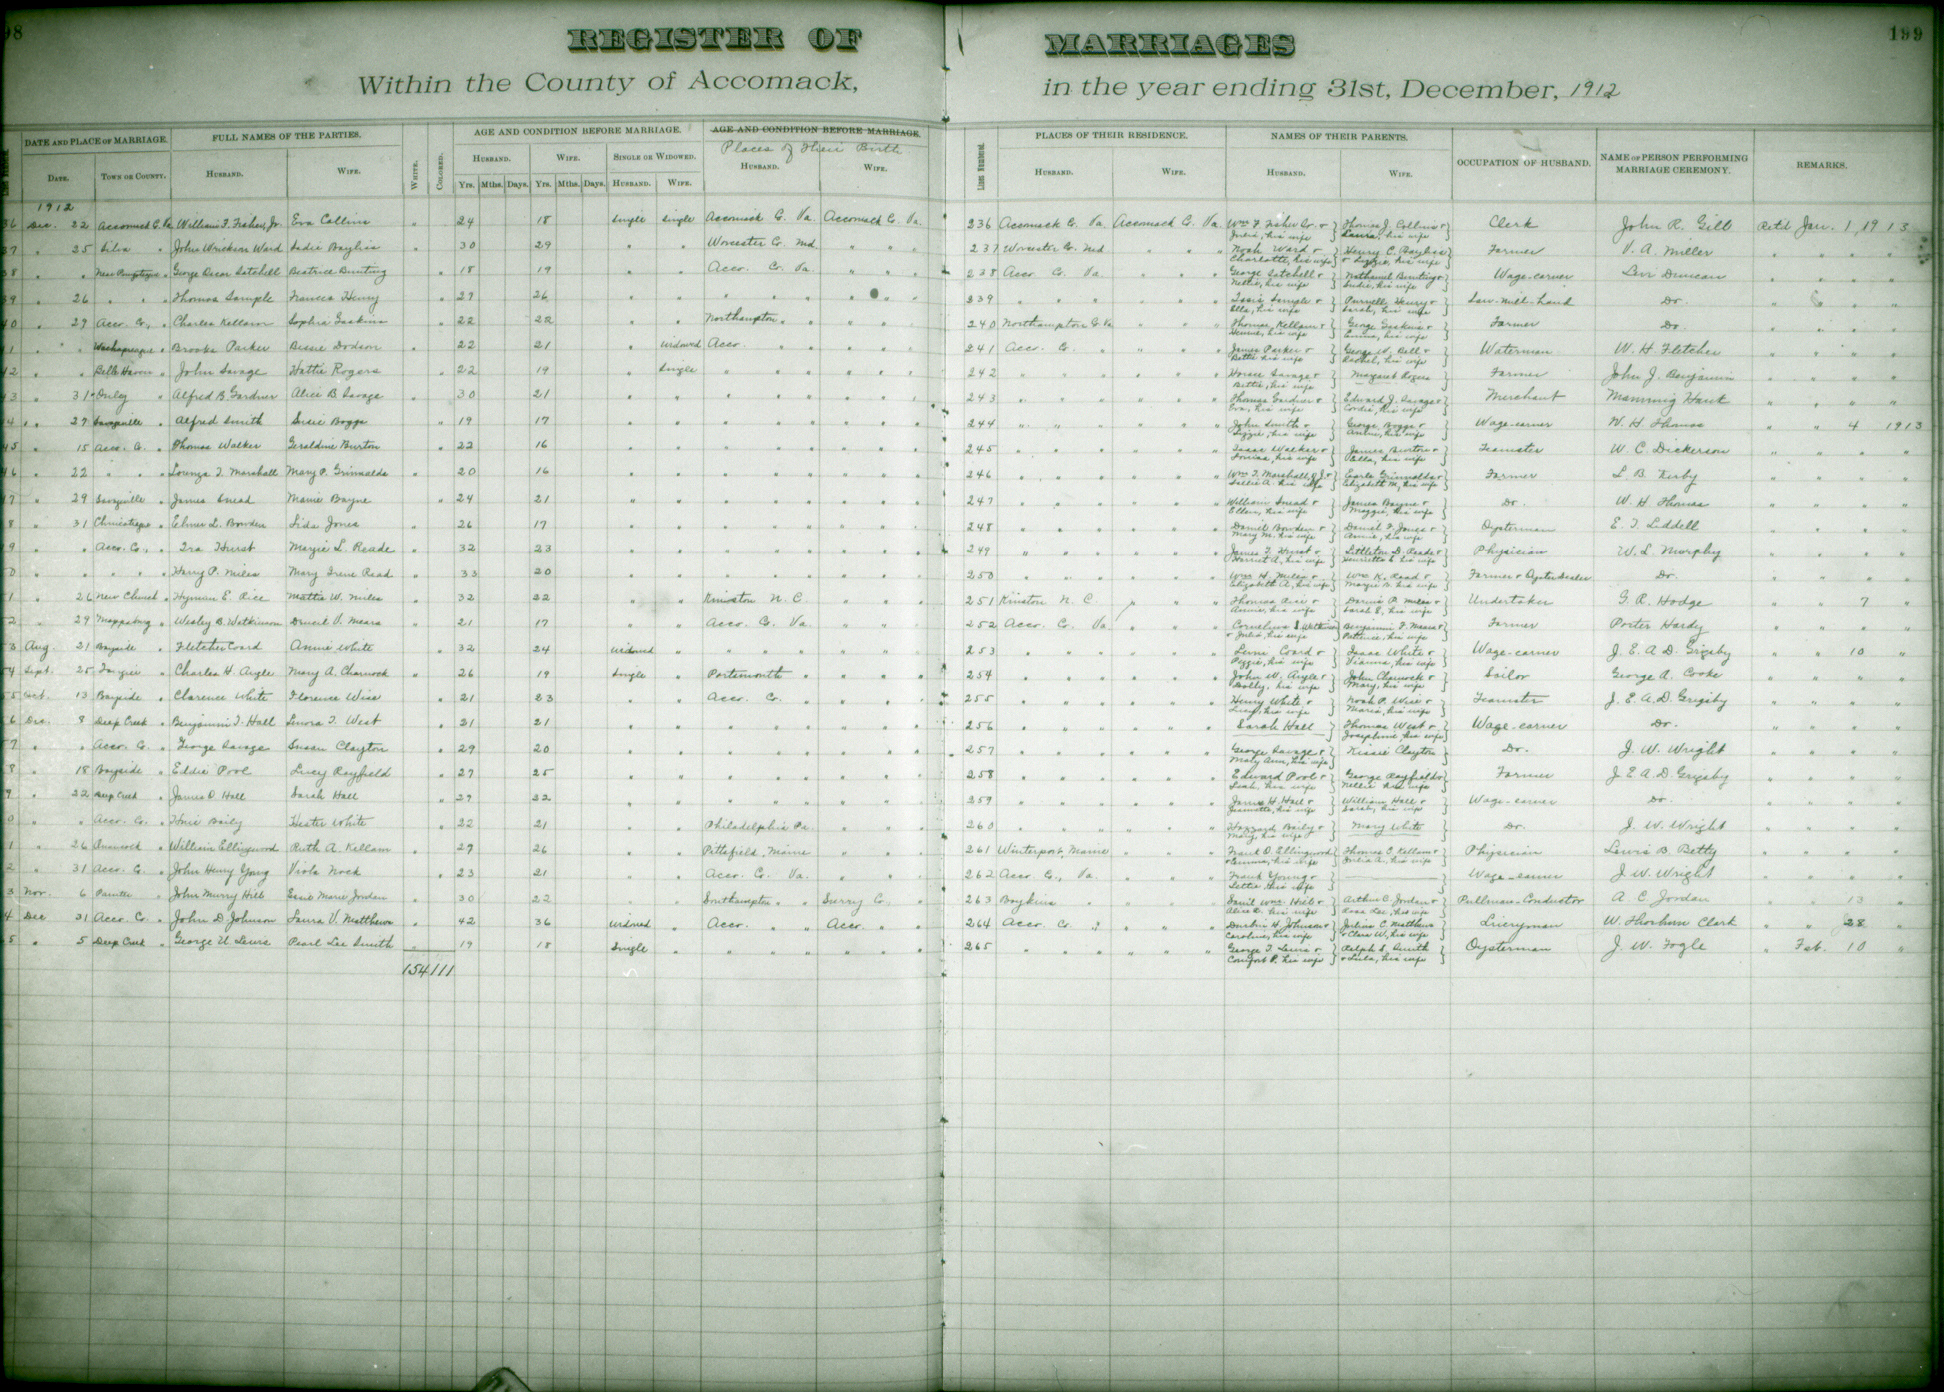 98
REGISTER OF MARRIAGES
199
Within the County of Accomack, in the year ending 31st, December, 1912
DATE AND PLACE OF MARRIAGE. FULL NAMES OF THE PARTIES. WHITE. COLORED. AGE AND CONDITION BEFORE MARRIAGE. AGE AND CONDITION BEFORE MARRIAGE. Lines Numbered. PLACES OF THEIR RESIDENCE. NAMES OF THEIR PARENTS. OCCUPATION OF HUSBAND. NAME OF PERSON PERFORMING MARRIAGE CEREMONY. REMARKS.
Places of Their Birth
DATE. TOWN OR COUNTY. HUSBAND. WIFE. HUSBAND. WIFE. SINGLE OR WIDOWED. HUSBAND. WIFE. HUSBAND. WIFE. HUSBAND. WIFE.
Yrs. Mths. Days. Yrs. Mths. Days. HUSBAND. WIFE.
1912
36 Dec. 22 Accomack Co. Va. William F. Fisher, Jr. Eva Collins " 24 18 Single Single Accomack Co. Va. Accomack Co. Va. 236 Accomack Co. Va. Accomack Co. Va. Wm. F. Fisher Sr. & Julia, his wife } Thomas J. Collins & Laura, his wife } Clerk John R. Gill Ret'd Jan. 1, 1913
37 " 25 Silva " John Wricken Ward Sadie Bayliss " 30 29 " " Worcester Co. Md " " " 237 Worcester Co. Md " " Noah Ward & Charlotte, his wife } Henry C. Bayliss & Lizzie, his wife } Farmer V. A. Miller " " " "
38 " " George Oscar Satchell Beatrice Bunting " 18 19 " " Accr. Co. Va. " " " 238 Accr Co. Va. " " George Satchell & Nettie, his wife } Nathaniel Bunting & Sadie, his wife } Wage-earner Levi Duncan " " " "
39 " 26 " " " Thomas Sample Frances Henry " 27 26 " " " " " " " 239 " " " " " Sample & Ella, his wife } Purnell Henry & Sarah, his wife } Saw-mill-hand Do. " " " "
40 " 29 Accr. Co., " Charles Kellam Sophia Gaskins " 22 22 " " Northampton " " " " 240 Northampton Co. Va " " Thomas Kellam & his wife } George Gaskins & Emma, his wife } Farmer Do. " " " "
1 " " Wachapreague " Brooks Parker Bessie Dodson " 22 21 " Widowed Accr. " " " " 241 Accr. Co. " " " James Parker & Bettie his wife } George W. Bell & Rachel, his wife } Waterman W. H. Fletcher " " " "
2 " " Belle Haven " John Savage Hattie Rogers " 22 19 " Single " " " " " 242 " " " " Horace Savage & Bettie, his wife } Margaret Rogers } Farmer John J. Benjamin " " " "
3 " 31 " Alfred B. Gardner Alice B. Savage " 30 21 " " " " " " 243 " " " " Thomas Gardner & Eva, his wife } Edward J. Savage & Cordie, his wife } Merchant Manning Hant " " " "
4 " 27 Savageville " Alfred Smith Susie Boggs " 19 17 " " " " " " 244 " " " " John Smith & Lizzie, his wife } George Boggs & Annie, his wife } Wage-earner W. H. Thomas " " 4 1913
45 " 15 Accr. Co. " Thomas Walker Geraldine Burton " 22 16 " " " " " " 245 " " " " Isaac Walker & Louisa, his wife } James Burton & Ella, his wife } Teamster W. C. Dickerson " " " "
46 " 22 " " " T. Marshall Mary P. Grinnalds " 20 16 " " " " " " 246 " " " " Wm. T. Marshall & Sallie A. his wife } Grinnalds & Elizabeth M, his wife } Farmer L. B. Kirby " " " "
47 " 29 " James Snead Mamie Bayne " 24 21 " " " " " " 247 " " " " William Snead & Ellen, his wife } James Bayne & Maggie, his wife } Do. W. H Thomas " " " "
8 " 31 " Elmer L. Bowden Lida Jones " 26 17 " " " " " " 248 " " " " Daniel Bowden & Mary M. his wife } Daniel F. Jones & Annie, his wife } Oysterman E. T. Liddell " " " "
9 " " Accr. Co., " Ira Hurst Margie L. Reade " 32 23 " " " " " " 249 " " " " James T. Hurst & Harriet A, his wife } Littleton D. Reade & Henrietta E. his wife } Physician W. L. Murphy " " " "
0 " " " " " Harry P. Miles Mary Irene Read " 33 20 " " " " " " 250 " " " " Wm. H. Miles & Elizabeth A, his wife } Wm. K. Read & Margie B. his wife } Farmer & Oyster Dealer Do. " " " "
1 " 26 New Church " Hyman E. Rice Mattie W. Miles " 32 22 " " Kinston N. C. " " " 251 Kinston N. C. " " " Thomas Rice & Annie, his wife } Dennis P. Miles & Sarah E, his wife } Undertaker G. R. Hodge " " 7 "
2 " 29 Mappsburg " Wesley B. Watkinson V. Mears " 21 17 " " Accr. Co. Va. " " " 252 Accr. Co. Va " " " Cornelius S. Watkinson & Julia, his wife } Benjamin F. Mears & his wife } Farmer Porter Hardy " " " "
3 Aug. 21 Bayside " Fletcher Coard Annie White " 32 24 Widowed " " " " " 253 " " " " Levi Coard & Peggie, his wife } Isaac White & Vianna, his wife } Wage-earner J. E. A. D. Grigsby " " 10 "
54 Sept. 25 Tangier " Charles H. Angle Mary A. Charnock " 26 19 Single " Portsmouth " " " 254 " " " " John W. Angle & Dolly, his wife } John Charnock & Mary, his wife } Sailor George A. Cooke " " " "
55 Oct. 13 Bayside " Clarence White Florence Wise " 21 23 " " Accr. Co. " " " 255 " " " " Henry White & Lucy, his wife } Noah P. Wise & Maria, his wife } Teamster J. E. A. D. Grigsby " " " "
6 Dec. 8 Deep Creek " Benjamin T. Hall Lenora T. West " 21 21 " " " " " " 256 " " " " Sarah Hall } Thomas West & Josephine, his wife } Wage-earner Do. " " " "
7 " " Accr. Co. " George Savage Susan Clayton " 29 20 " " " " " " 257 " " " " George Savage & Mary Ann, his wife } Kissie Clayton } Do. J. W. Wright " " " "
8 " 18 Bayside " Eddie Pool Lucy Rayfield " 27 25 " " " " " " 258 " " " " Edward Pool & Leah, his wife } George Rayfield & Nellie his wife } Farmer J. E. A. D. Grigsby " " " "
9 " 22 Deep Creek " James O. Hall Sarah Hall " 27 22 " " " " " " 259 " " " " James H. Hall & Jeannette, his wife } William Hall & Sarah, his wife } Wage-earner Do. " " " "
0 " " Accr. Co. " Baily Hester White " 22 21 " " Philadelphia Pa. " " 260 " " " " Hazzard Baily & Mary, his wife } Mary White } Do. J. W. Wright " " " "
1 " 26 Onancock " William Ellingwood Ruth A. Kellam " 27 26 " " Pittsfield, Maine " " 261 Winterport, Maine " " " Frank D. Ellingwood & Emma, his wife } Thomas C. Kellam & Julia A., his wife } Physician Lewis B. Betty " " " "
2 " 31 Accr. Co. " John Henry Young Viola Nock " 23 21 " " Accr. Co. Va. " " " 262 Accr. Co., Va. " " " Frank Young & Lettie, his wife } Wage-earner J. W. Wright " " " "
3 Nov. 6 Painter " John Murry Hill Marie Jordan " 30 22 " " Southampton " " Surry Co. " 263 Boykins " " " Wm. Hill & Alice R., his wife } Arthur C. Jordan & Rosa Lee, his wife } Pullman-Conductor A. C. Jordan " " 13 "
4 Dec 31 Accr. Co. " John D. Johnson Laura V. Matthews " 42 36 Widowed " Accr. " " Accr. " " 264 Accr. Co. " " " H. Johnson & Caroline, his wife } Julius C. Matthews & Clara W., his wife } Liveryman W. Thorburn Clark " " 28 "
5 " 5 Deep Creek " George U. Lewis Pearl Lee Smith " 19 18 Single " " " " " " 265 " " " " George T. Lewis & Comfort P. his wife } Ralph S. Smith & Lula, his wife } Oysterman J. W. Fogle " Feb. 10 "
154 111